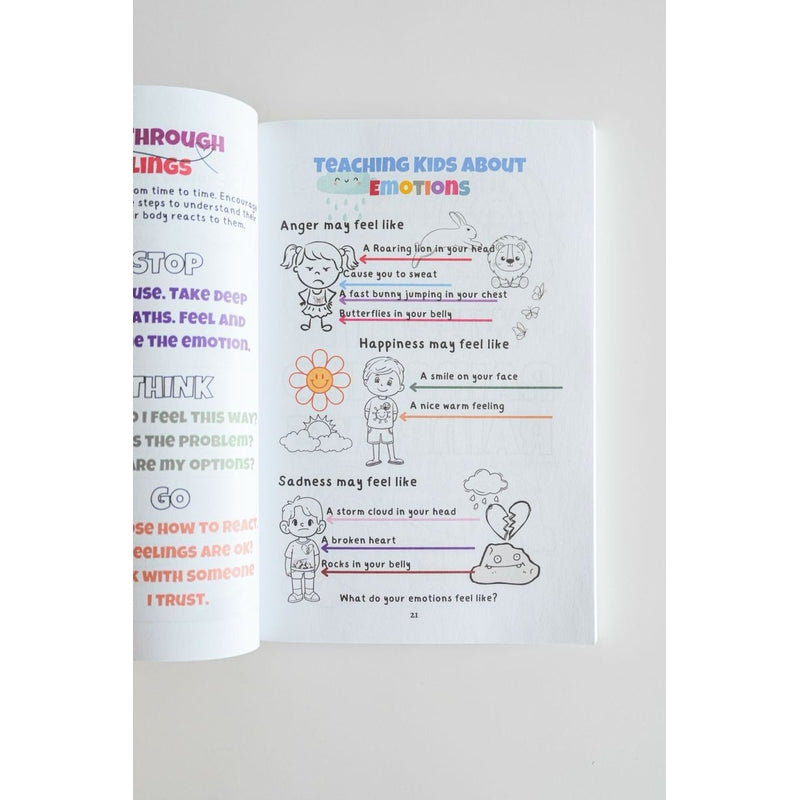 THROUGH
LINGS
om time to time. Encourage
steps to understand their
r body reacts to them.
STOP
USE. TAKE DEEP
ATHS. FEEL AND
E THE EMOTION.
THINK
O I FEEL THIS WAY?
S THE PROBLEM?
ARE MY OPTIONS?
GO
OSE HOW TO REACT.
FEELINGS ARE OK!
K WITH SOMEONE
I TRUST.
TEACHING KIDS ABOUT
EMOTIONS
Anger may feel like
A Roaring lion in your head
Cause you to sweat
A fast bunny jumping in your chest
Butterflies in your belly
Happiness may feel like
A smile on your face
A nice warm feeling
Sadness may feel like
A storm cloud in your head
A broken heart
Rocks in your belly
What do your emotions feel like?
21